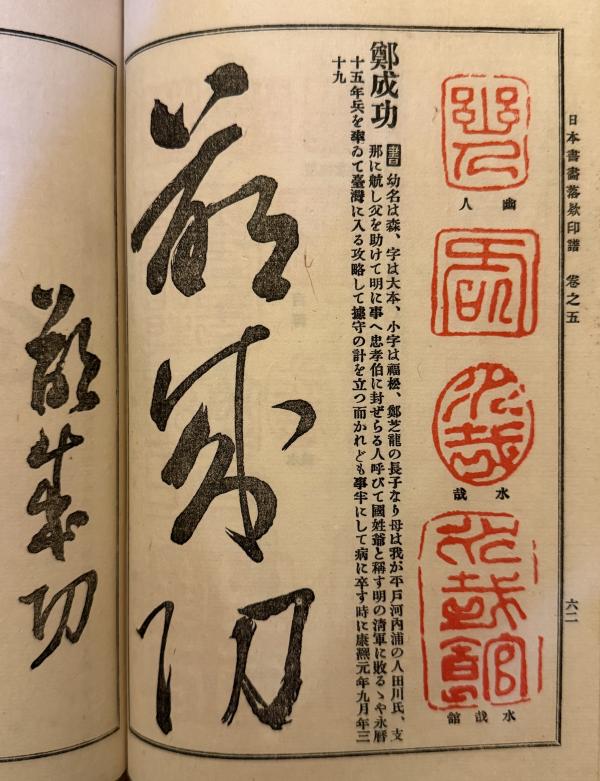 日本書畫落欵印譜 卷之五
六二
幽人
幽人
水哉
水哉
水哉館
水哉館
鄭成功
幼名は森、字は大本、小字は福松、鄭芝龍の長子なり母は我が平戸河內浦の人田川氏、支
那に航し父を助けて明に事へ忠孝伯に封ぜらる人呼びて國姓爺と稱す明の清軍に敗るゝや永曆
十五年兵を率ゐて臺灣に入る攻略して據守の計を立つ而かれども事半にして病に卒す時に康熙元年九月年三
十九
鄭成功
鄭成功